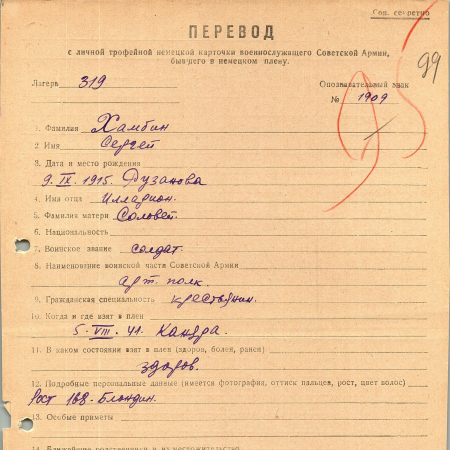 Сов. секретно
ПЕРЕВОД
99
с личной трофейной немецкой карточки военнослужащего Советской Армии,
бывшего в немецком плену.
Лагерь 319
Опознавательный знак
№ 1909
1. Фамилия Хамбин
2. Имя Сергей
3. Дата и место рождения
9. IX. 1915. Дузанова
4. Имя отца Илларион.
5. Фамилия матери Соловей.
6. Национальность
7. Воинское звание солдат
8. Наименование воинской части Советской Армии
арт. полк.
9. Гражданская специальность крестьянин.
10. Когда и где взят в плен
5. VIII. 41. Кандра.
11. В каком состоянии взят в плен (здоров, болен, ранен)
здоров.
12. Подробные персональные данные (имеется фотография, оттиск пальцев, рост, цвет волос)
Рост 168. Блондин.
13. Особые приметы
14. Ближайшие родственники и их местожительство